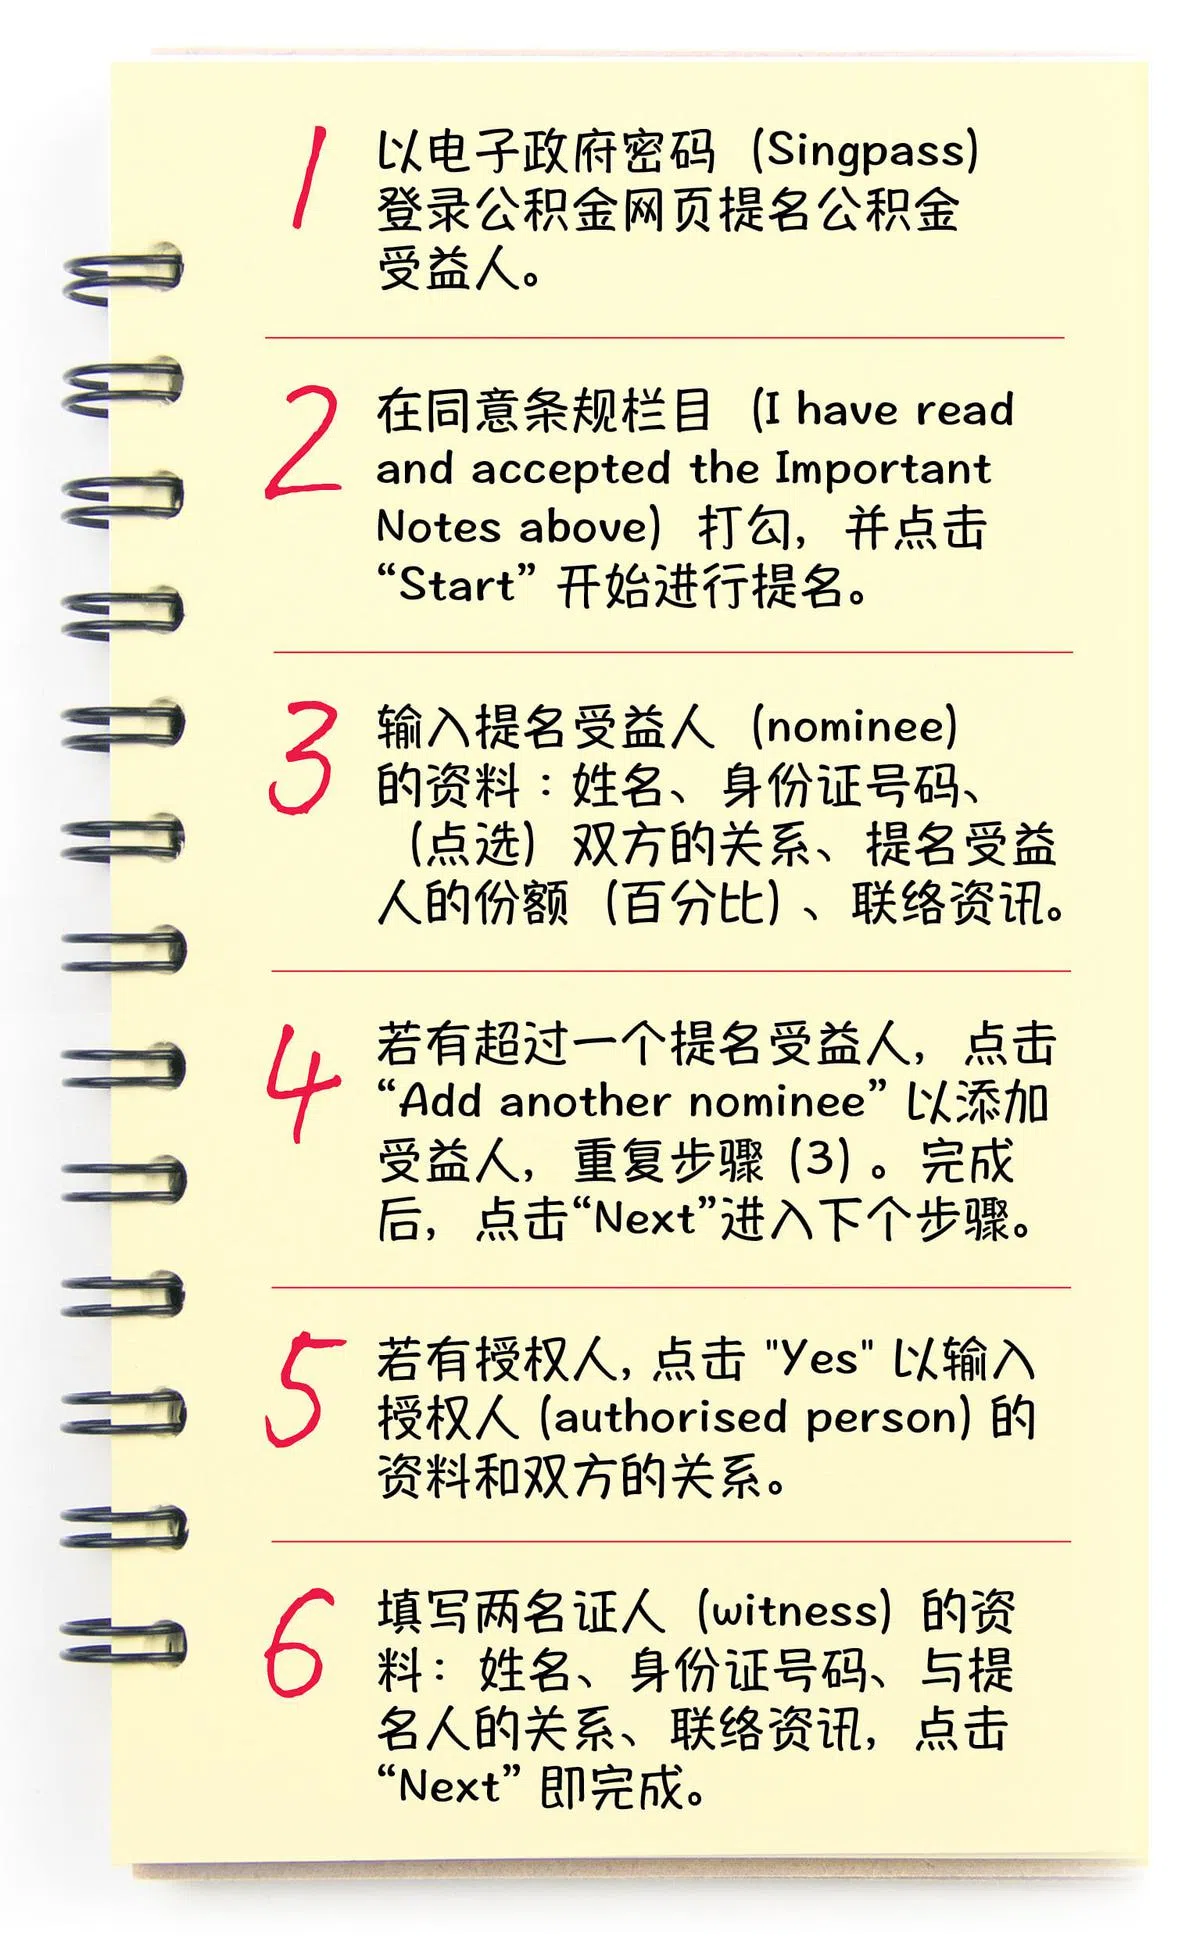 1
以电子政府密码 (Singpass)
登录公积金网页提名公积金
受益人。
2
在同意条规栏目 (I have read
and accepted the Important
Notes above) 打勾, 并点击
“Start” 开始进行提名。
3
输入提名受益人 (nominee)
的资料：姓名、身份证号码、
(点选) 双方的关系、提名受益
人的份额 (百分比) 、联络资讯。
4
若有超过一个提名受益人, 点击
“Add another nominee” 以添加
受益人, 重复步骤 (3) 。完成
后, 点击“Next”进入下个步骤。
5
若有授权人, 点击 "Yes" 以输入
授权人 (authorised person) 的
资料和双方的关系。
6
填写两名证人 (witness) 的资
料： 姓名、身份证号码、与提
名人的关系、联络资讯, 点击
“Next” 即完成。